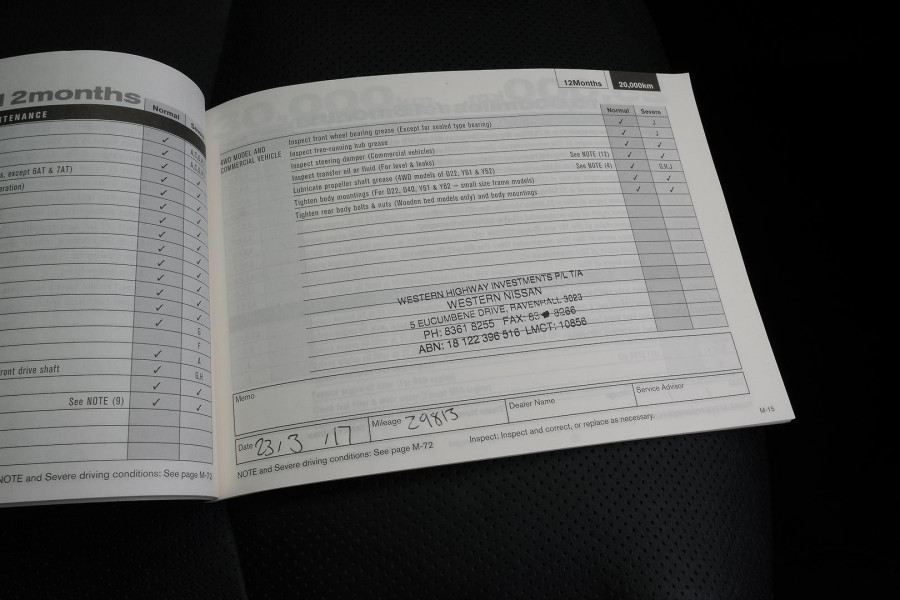 12months
Normal
TENANCE
, except 6AT & 7AT)
eration)
ront drive shaft
See NOTE (9)
G
F
A
G,H
NOTE and Severe driving conditions: See page M-72
12Months 20,000km
Normal Severe
4WD MODEL AND
COMMERCIAL VEHICLE
Inspect front wheel bearing grease (Except for sealed type bearing)
Inspect free-running hub grease
Inspect steering damper (Commercial vehicles)
Inspect transfer oil or fluid (For level & leaks) See NOTE (13)
Lubricate propeller shaft grease (4WD models of D22, Y61 & Y62) See NOTE (4) G,H,J
Tighten body mountings (For D22, D40, Y61 & Y62 – small size frame models)
Tighten rear body bolts & nuts (Wooden bed models only) and body mountings
WESTERN HIGHWAY INVESTMENTS P/L T/A
WESTERN NISSAN
5 EUCUMBENE DRIVE, RAVENHALL 3023
PH: 8361 8255 FAX: 83 8266
ABN: 18 122 396 516 LMCT: 10856
Memo
Date 23/3/17 Mileage 29813 Dealer Name Service Advisor
NOTE and Severe driving conditions: See page M-72 Inspect: Inspect and correct, or replace as necessary.
M-15